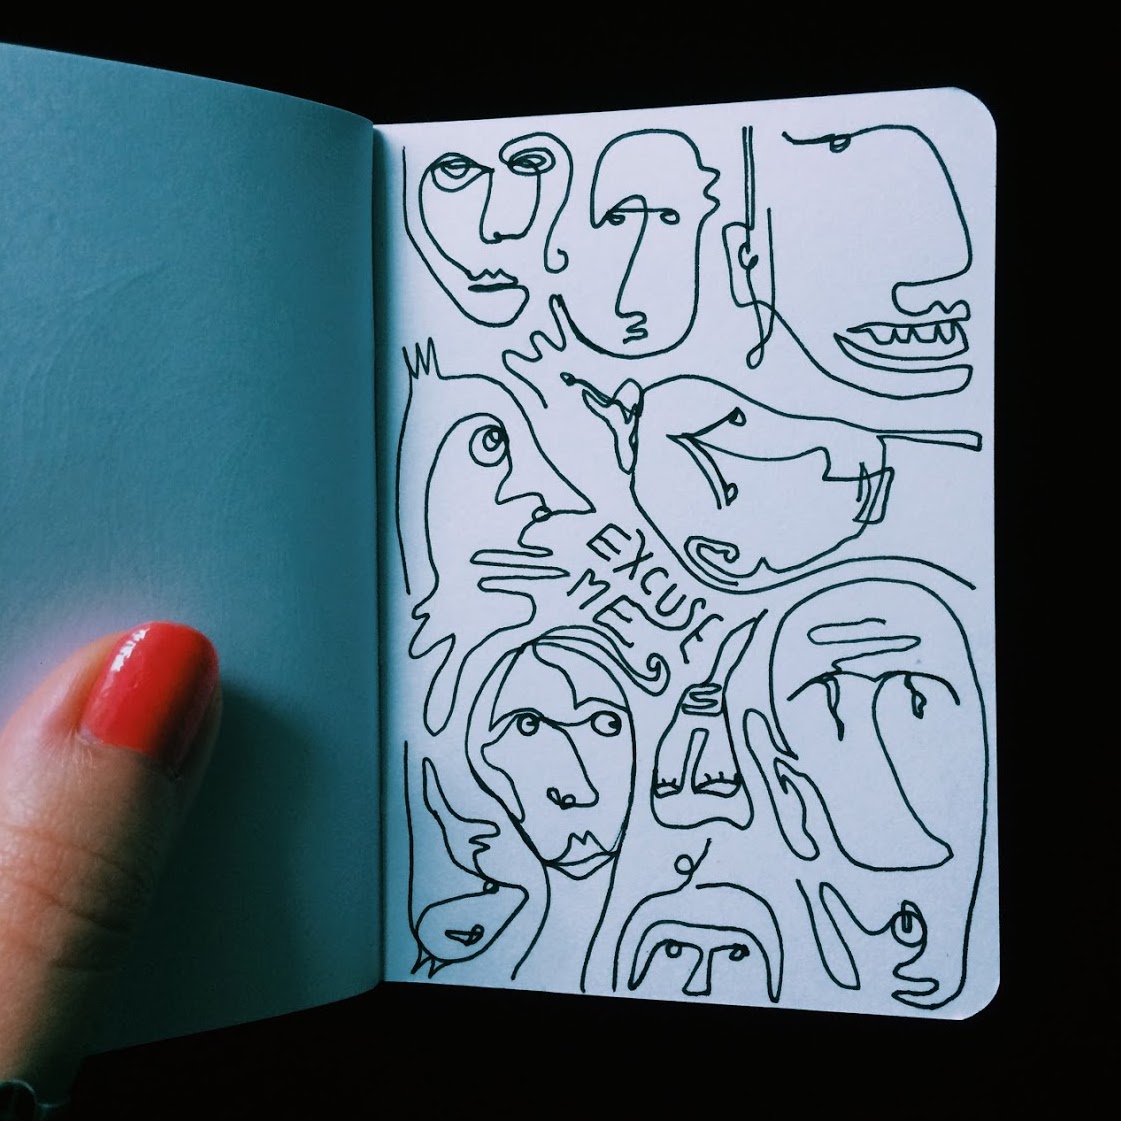 EXCUSE
ME